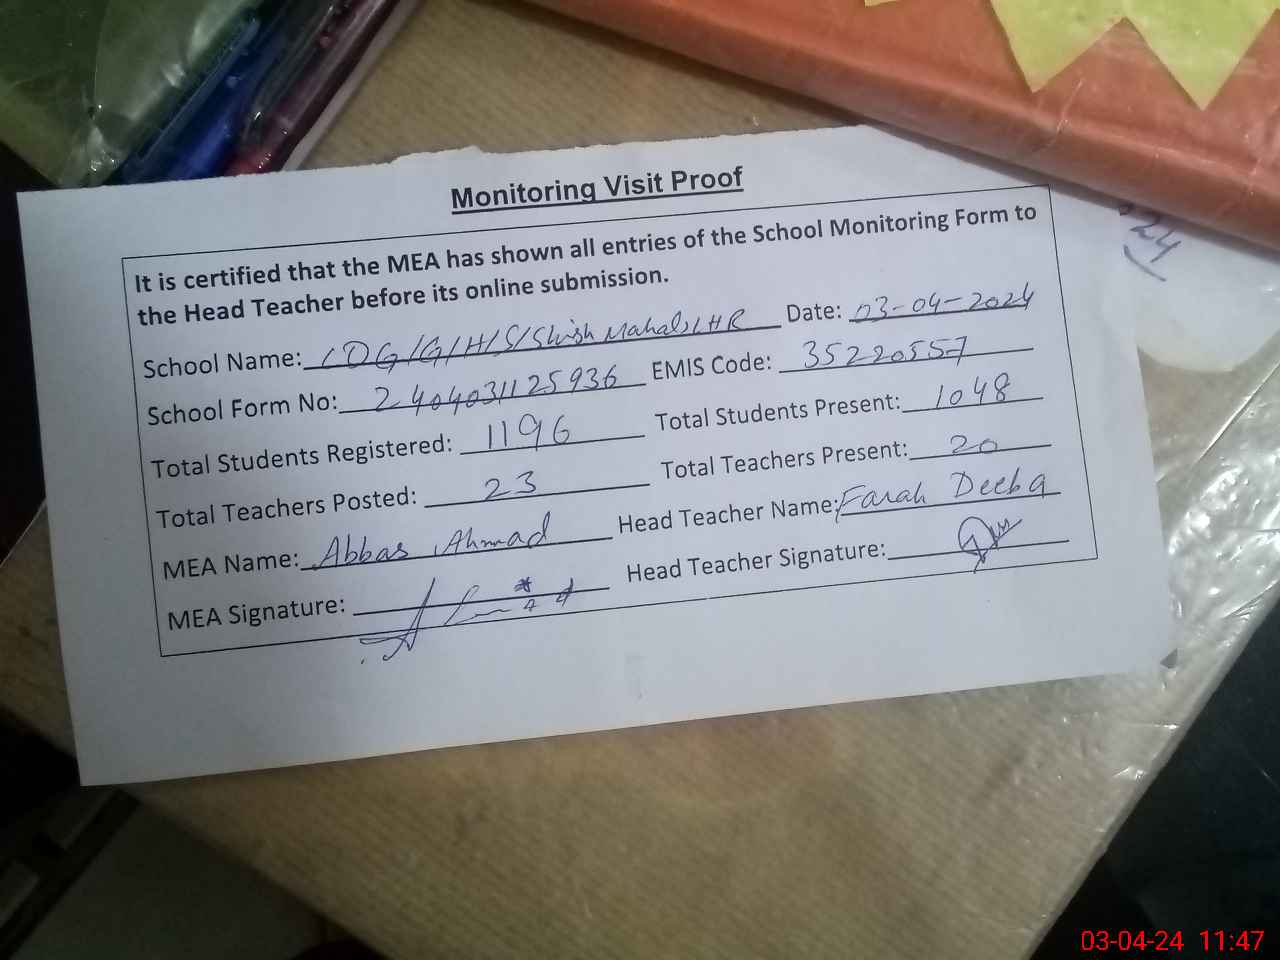 Monitoring Visit Proof
It is certified that the MEA has shown all entries of the School Monitoring Form to
the Head Teacher before its online submission.
School Name: CDG/G/H/S/Shish Mahal, LHR Date: 03-04-2024
School Form No: 2404031125936 EMIS Code: 35220557
Total Students Registered: 1196 Total Students Present: 1048
Total Teachers Posted: 23 Total Teachers Present: 20
MEA Name: Abbas Ahmad Head Teacher Name: Farah Deeba
MEA Signature: Head Teacher Signature:
24
03-04-24 11:47